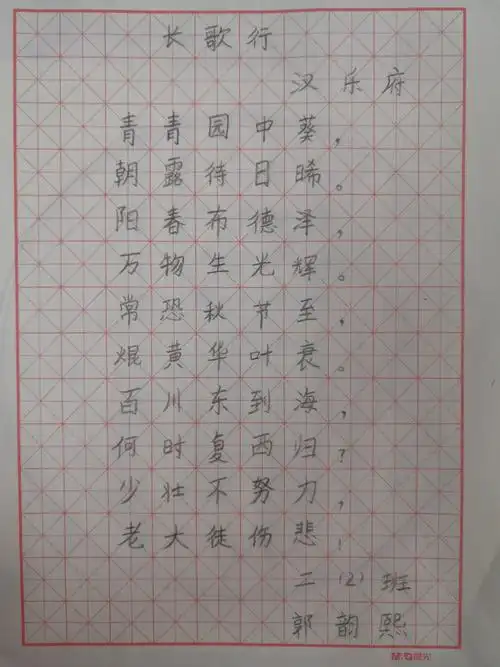 长歌行
汉乐府
青青园中葵，
朝露待日晞。
阳春布德泽，
万物生光辉。
常恐秋节至，
焜黄华叶衰。
百川东到海，
何时复西归？
少壮不努力，
老大徒伤悲！
二（2）班
郭韵熙
M&G晨光